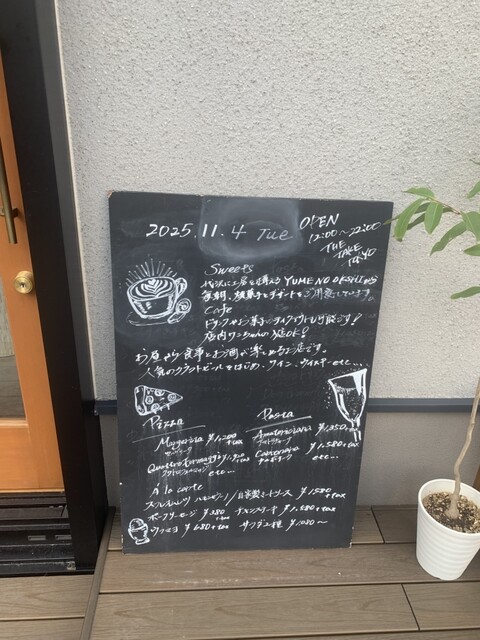 2025.11.4 Tue
OPEN
12:00~22:00
THE
TAKE
TOKYO
Sweets
代沢に工房を構える YUME NO OKASHIから
毎朝、焼菓子とデザートをご用意しています。
Cafe
ドリンクやお菓子のテイクアウトも可能です!
店内ワンちゃんのOK!
お昼から食事とお酒が楽しめるお店です。
人気のクラフトビールをはじめ、ワイン、ウイスキー etc...
Pizza
Margerita ¥1,200+tax
マルゲリータ
Quattro Formaggi ¥1,920+tax
クアトロフォルマッジ
etc...
Pasta
Amatriciana ¥1,350+tax
アマトリチャーナ
Carbonara ¥1,580+tax
カルボナーラ
etc...
A la carte
自家製ミートソース ¥1580+tax
ポークソーセージ ¥380+tax
ウフマヨ ¥680+tax
サラダ各種 ¥1,080~